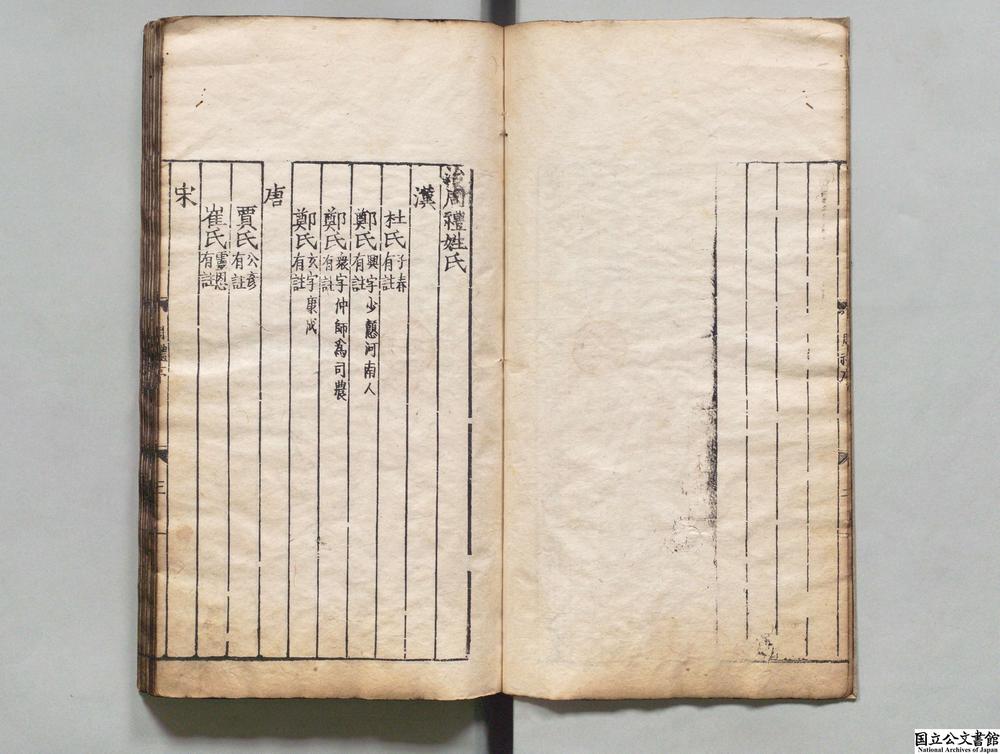 治周禮姓氏
漢
杜氏子春有註
鄭氏興字少贛河南人有註
鄭氏衆字仲師爲司農有註
鄭氏玄字康成有註
唐
賈氏公彥有註
崔氏靈恩有註
宋
三
国立公文書館
National Archives of Japan